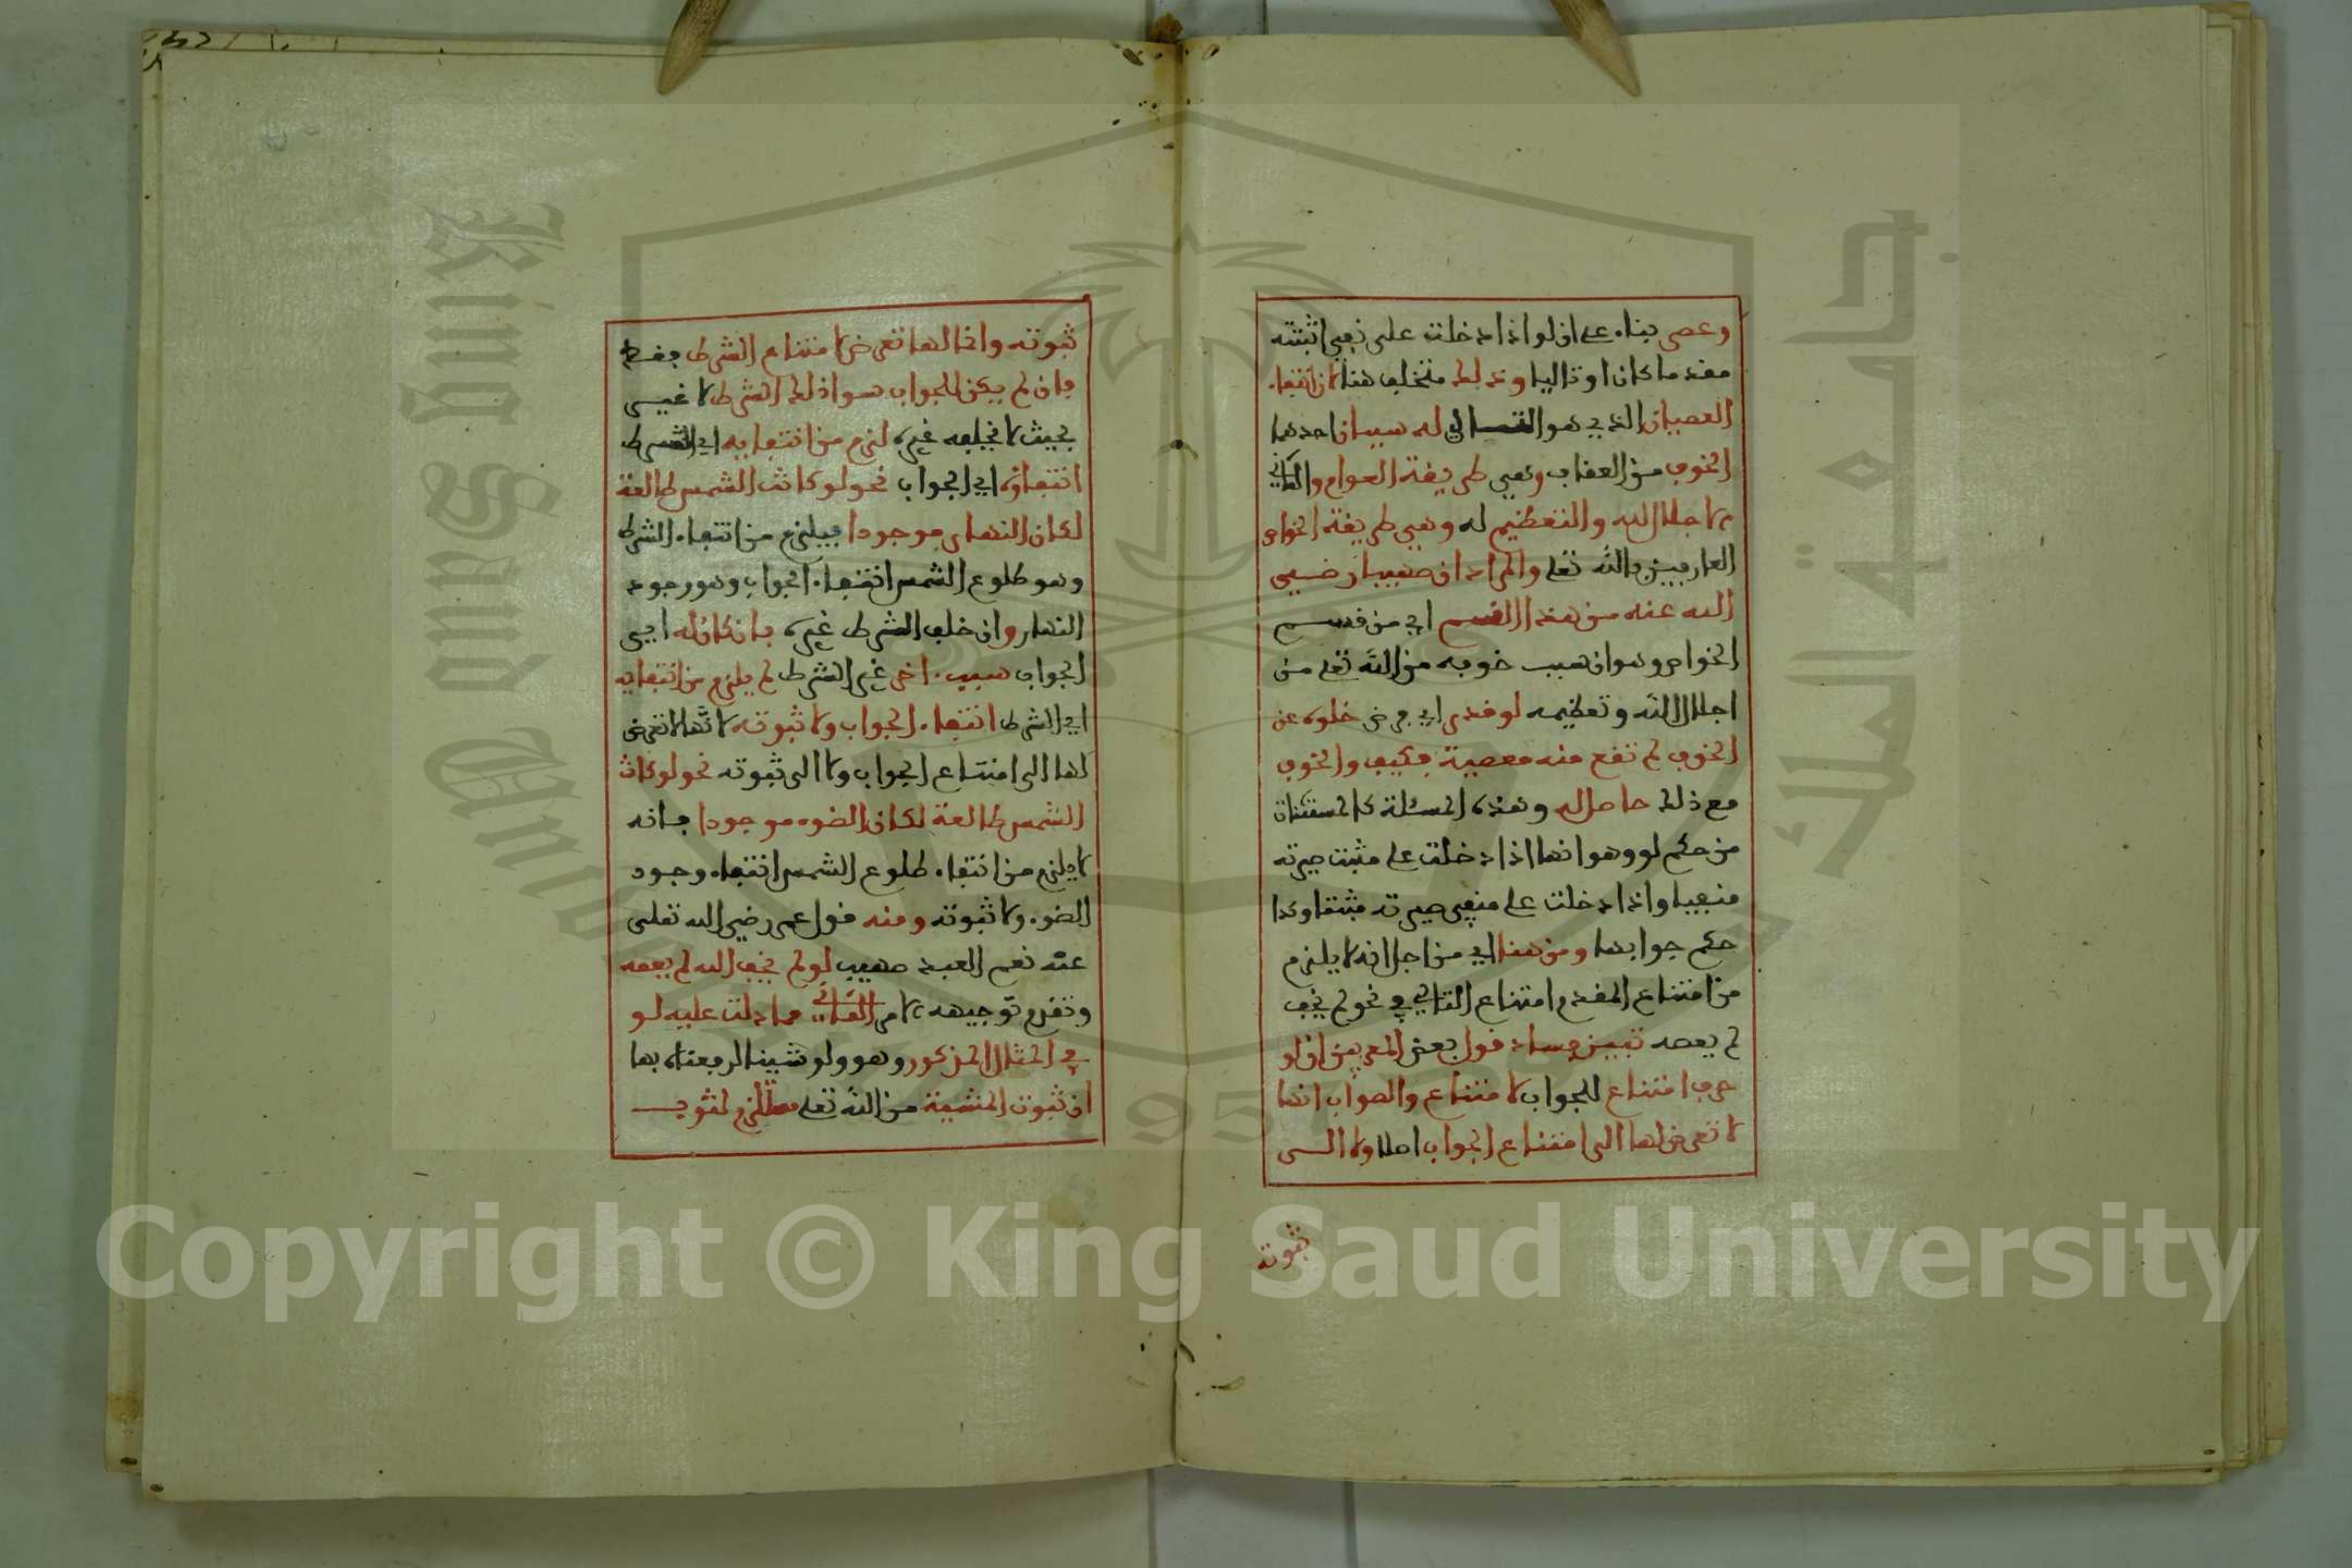 وعصى بناء على ان لو اذا دخلت على نفي اثبتته
مقدما كان او تاليا وذلك متخلف هنا لان انتفاء
العصيان الذي هو التالي له سببان احدهما
الخوف من العقاب وهي طريقة العوام والثاني
الاجلال لله والتعظيم له وهي طريقة الخواص
العارفين بالله تعلى والمراد ان صهيبا رضي
الله عنه من هذا القسم اي من قسم
الخواص وهو ان سبب خوفه من الله تعلى من
اجلال الله وتعظيمه لو قدر اي فرض خلوه عن
الخوف لم تقع منه معصية فكيف والخوف
مع ذلك حاصل له وهذه المسئلة كالمستثناة
من حكم لو وهو انها اذا دخلت على مثبت صيرته
منفيا واذا دخلت على منفي صيرته مثبتا وكذا
حكم جوابها ومن هنا اي من اجل انه لا يلزم
من امتناع المقدم امتناع التالي في نحو لم يخف
لم يعصه تبين فساد قول بعض المعربين ان لو
حرف امتناع للجواب لامتناع والصواب انها
لا تعرض لها الى امتناع الجواب اصلا ولا الى
ثبوته
ثبوته وانما لها تعرض لامتناع الشرط فقط
فان لم يكن للجواب سوا ذلك الشرط لا غيى
بحيث لا يخلفه غيره لزم من انتفايه اي الشرط
انتفاؤه اي الجواب نحو لو كانت الشمس طالعة
لكان النهار موجودا فيلزم من انتفاء الشرط
وهو طلوع الشمس انتفاء الجواب وهو وجود
النهار وان خلف الشرط غيره بان كان له اي
الجواب سبب اخر غير الشرط لم يلزم من انتفايه
اي الشرط انتفاء الجواب ولا ثبوته لانها لا تعرض
لها الى امتناع الجواب ولا الى ثبوته نحو لو كانت
الشمس طالعة لكان الضوء موجودا فانه
لا يلزم من انتفاء طلوع الشمس انتفاء وجود
الضوء ولا ثبوته ومنه قول عمر رضي الله تعلى
عنه نعم العبد صهيب لو لم يخف الله لم يعصه
وتقدم توجيهه الامر الثاني مما دلت عليه لو
في المثال المذكور وهو ولو شينا لرفعناه بها
ان ثبوت المشيئة من الله تعلى مستلزم لثبوت
Copyright © King Saud University